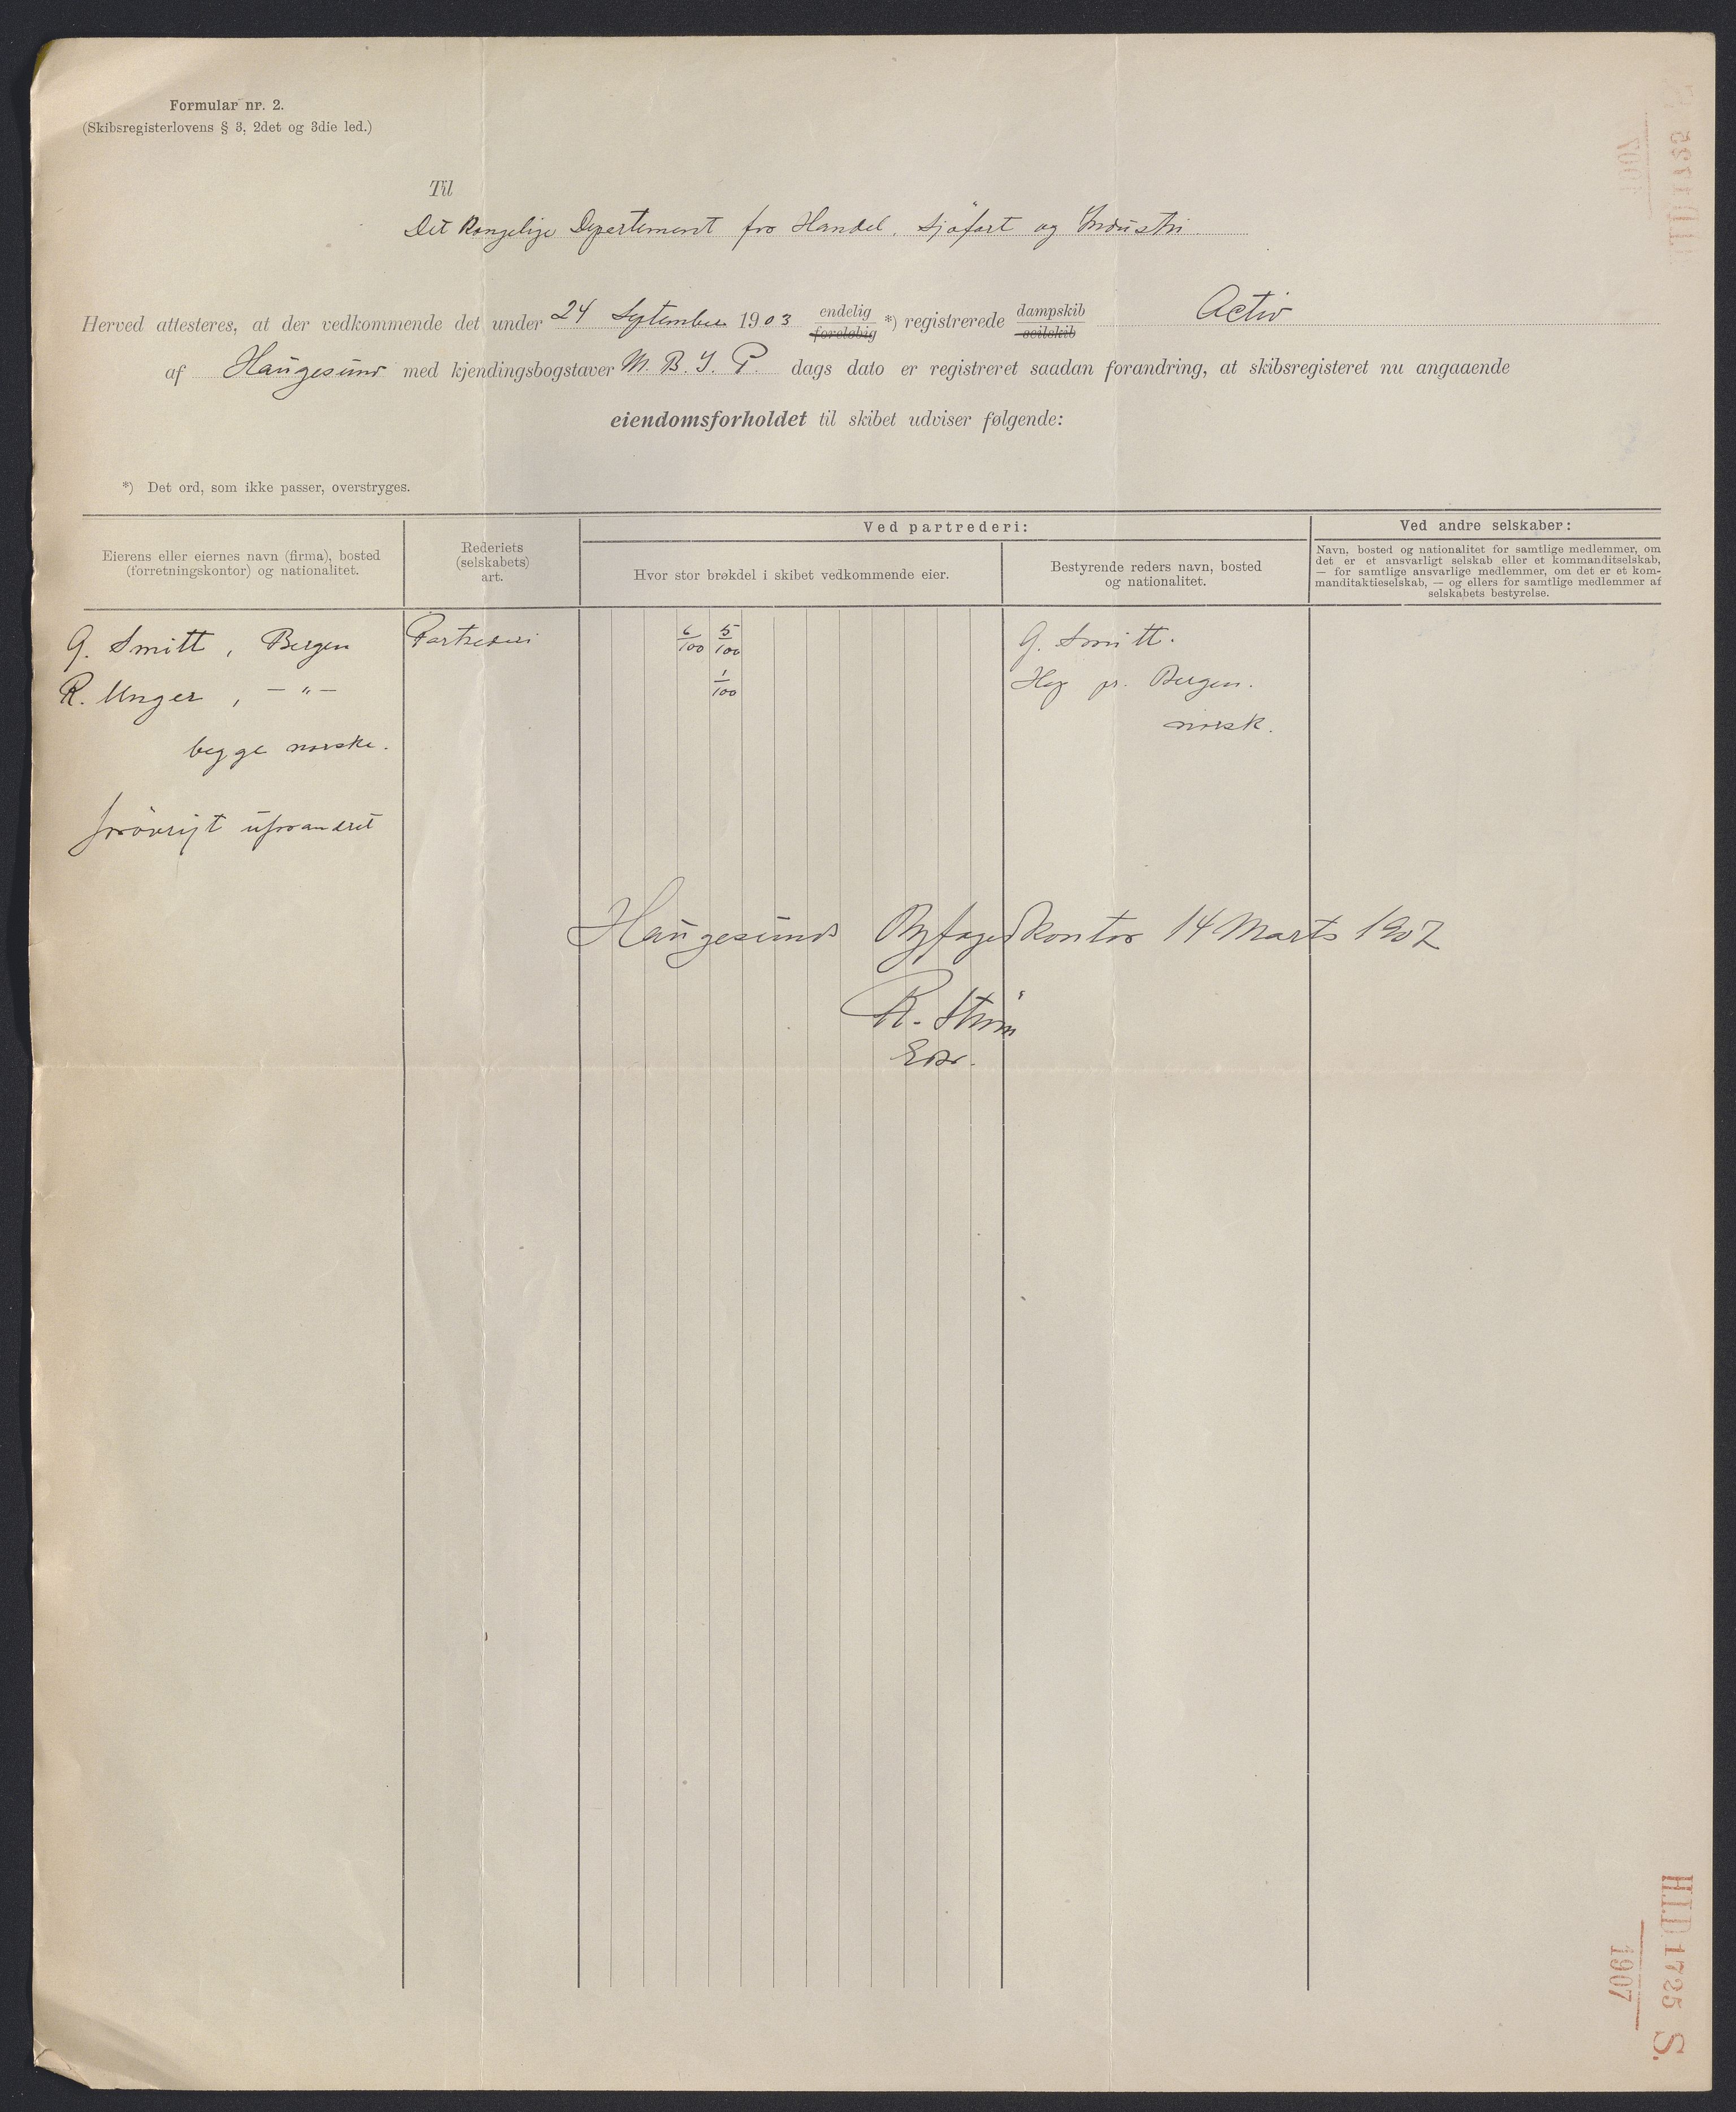 Formular nr. 2.
(Skibsregisterlovens § 3, 2det og 3die led.)
Til
Det Kongelige Departement for Handel, Sjøfart og Industri.
Herved attesteres, at der vedkommende det under 24 September 1903 endelig foreløbig *) registrerede dampskib seilskib Activ
af Haugesund med kjendingsbogstaver M. B. J. P. dags dato er registreret saadan forandring, at skibsregisteret nu angaaende
eiendomsforholdet til skibet udviser følgende:
*) Det ord, som ikke passer, overstryges.
Eierens eller eiernes navn (firma), bosted
(forretningskontor) og nationalitet.
Rederiets
(selskabets)
art.
Ved partrederi:
Hvor stor brøkdel i skibet vedkommende eier.
Bestyrende reders navn, bosted
og nationalitet.
Ved andre selskaber:
Navn, bosted og nationalitet for samtlige medlemmer, om
det er et ansvarligt selskab eller et kommanditselskab,
— for samtlige ansvarlige medlemmer, om det er et kom-
manditaktieselskab, — og ellers for samtlige medlemmer af
selskabets bestyrelse.
G. Smitt, Bergen Partrederi 6/100 5/100 G. Smitt.
R. Unger, — " — 1/100 Hop pr. Bergen.
norsk.
begge norske.
forøvrigt uforandret
Haugesunds Byfogedkontor 14 Marts 1907
R. Strøm
HID 1725 S.
1907